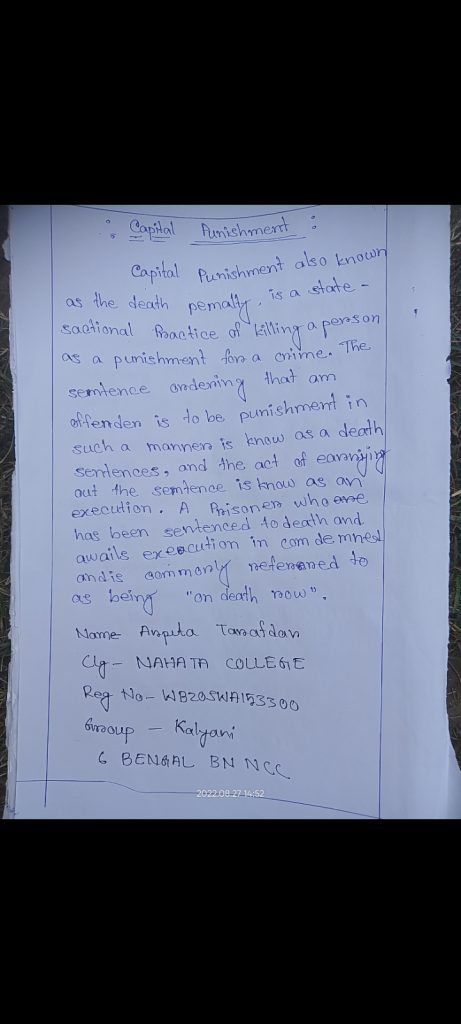 : Capital Punishment :
Capital Punishment also known
as the death pemalty, is a state -
sactional Practice of killing a person
as a punishment for a crime. The
semtence ordening that am
offender is to be punishment in
such a manner is know as a death
sentences, and the act of carrying
out the semtence is know as an
execution. A Prisoner who are
has been sentenced to death and
awails execution in comdemned
andis commonly referered to
as being "on death row".
Name- Arpita Tarafdar
Clg - NAHATA COLLEGE
Reg No- WB20SWA153300
Group - Kalyani
6 BENGAL BN NCC
2022.08.27 14:52